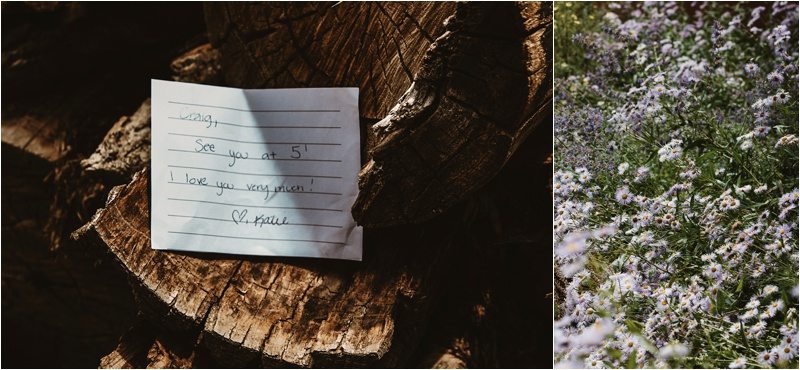 Craig,
See you at 5!
I love you very much!
♡, Katie